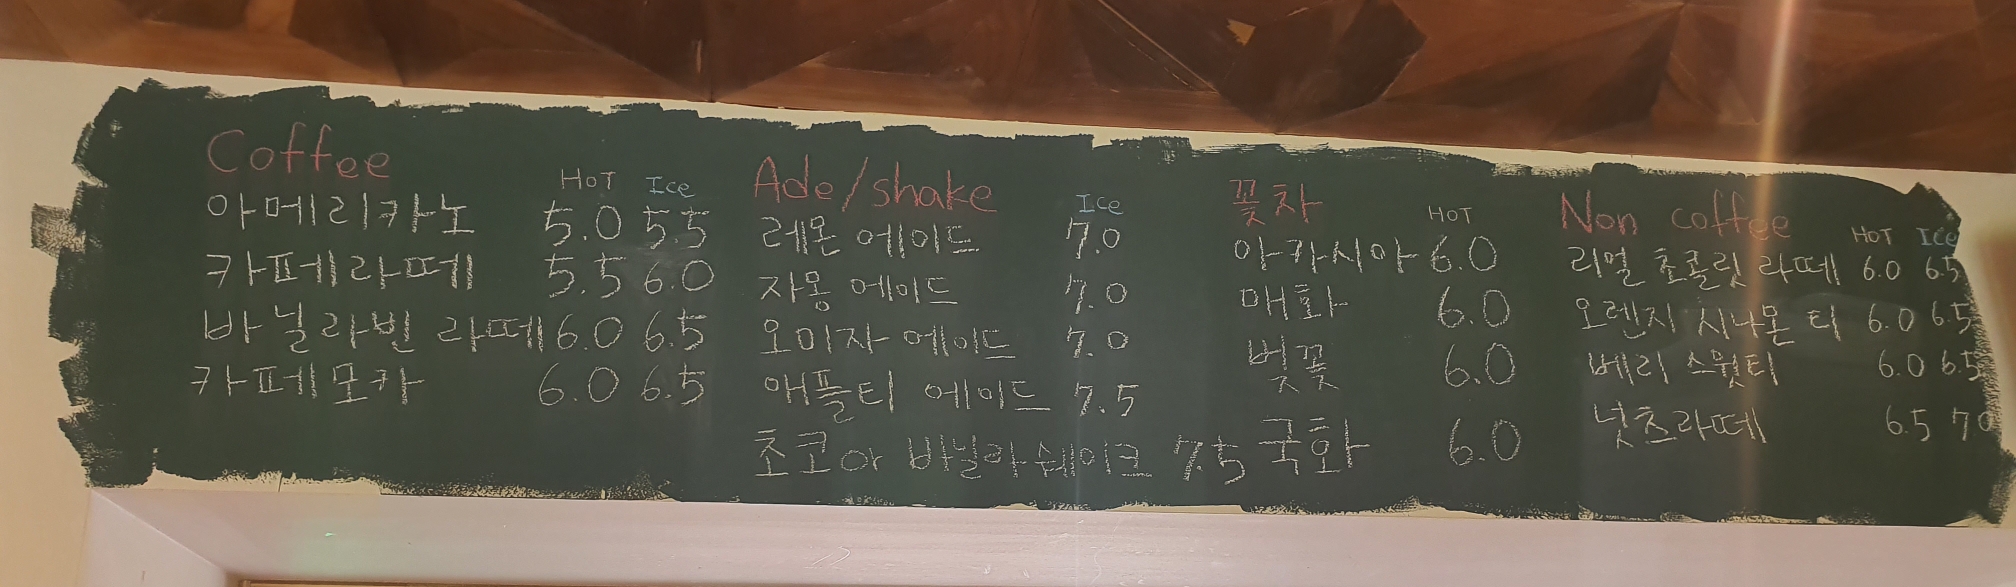 Coffee
HOT Ice
아메리카노 5.0 5.5
카페라떼 5.5 6.0
바닐라빈 라떼 6.0 6.5
카페모카 6.0 6.5
Ade/shake
Ice
레몬 에이드 7.0
자몽 에이드 7.0
오미자 에이드 7.0
애플티 에이드 7.5
초코or 바닐라쉐이크 7.5
꽃차
HOT
아카시아 6.0
매화 6.0
벚꽃 6.0
국화 6.0
Non coffee
HOT Ice
리얼 초콜릿 라떼 6.0 6.5
오렌지 시나몬 티 6.0 6.5
베리 스윗티 6.0 6.5
넛츠라떼 6.5 7.0